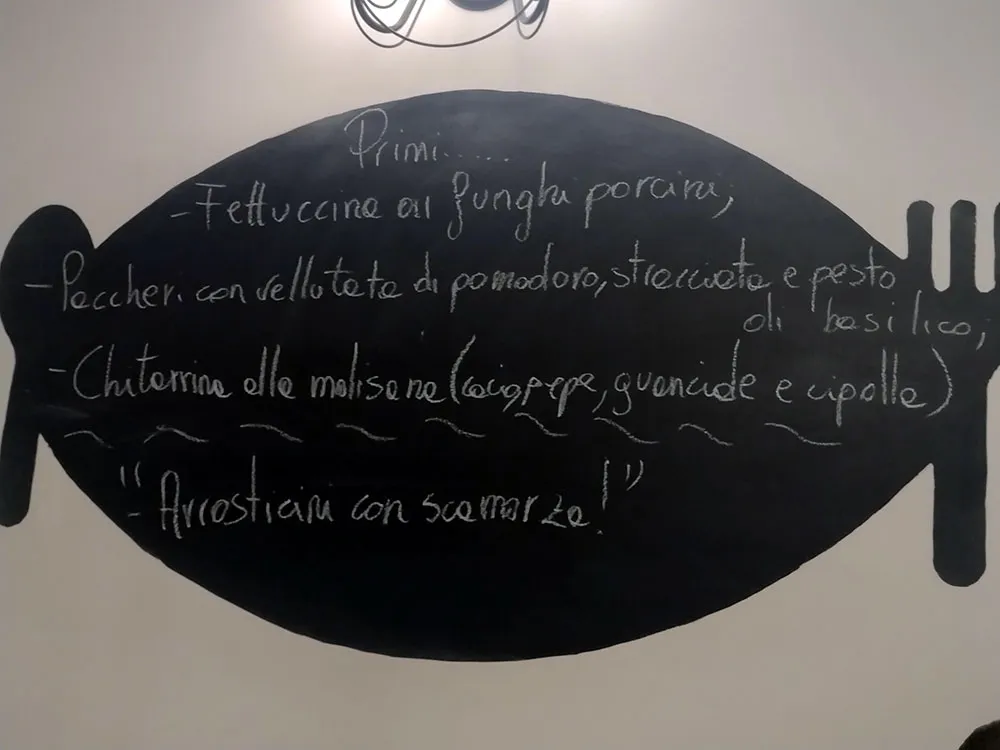 Primi......
- Fettuccine ai funghi porcini;
- Paccheri con vellutata di pomodoro, stracciata e pesto
di basilico;
- Chitarrina alla molisana (cacio, pepe, guanciale e cipolla)
"
- Arrosticini con scamorza!"